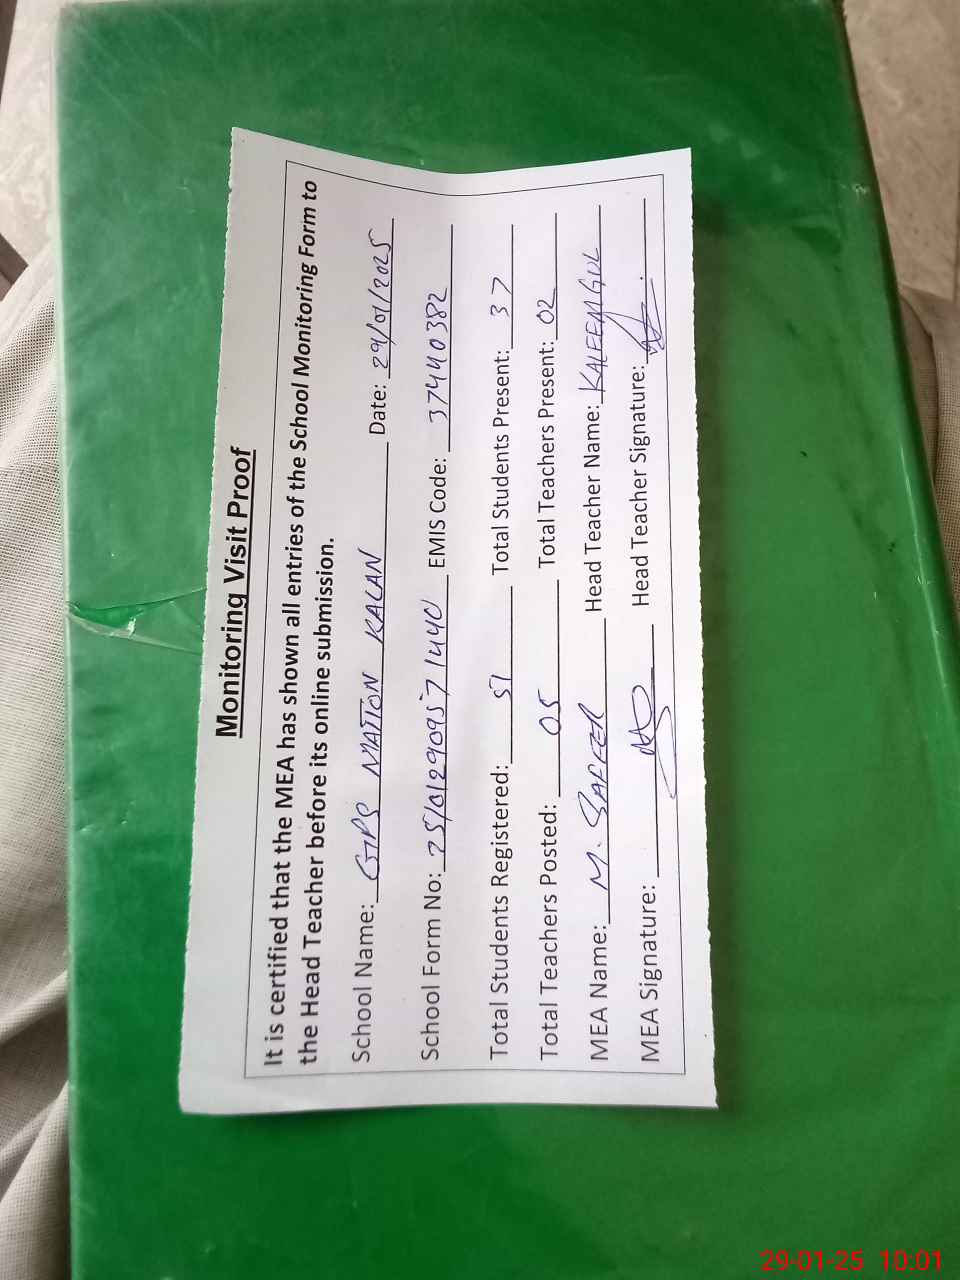 Monitoring Visit Proof
It is certified that the MEA has shown all entries of the School Monitoring Form to
the Head Teacher before its online submission.
School Name: GPS MATTON KALAN Date: 29/01/2025
School Form No: 25/01290957144C EMIS Code: 37440382
Total Students Registered: 51 Total Students Present: 37
Total Teachers Posted: 05 Total Teachers Present: 02
MEA Name: M. SAFEER Head Teacher Name: KALEEM GUL
MEA Signature: Head Teacher Signature:
29-01-25 10:01